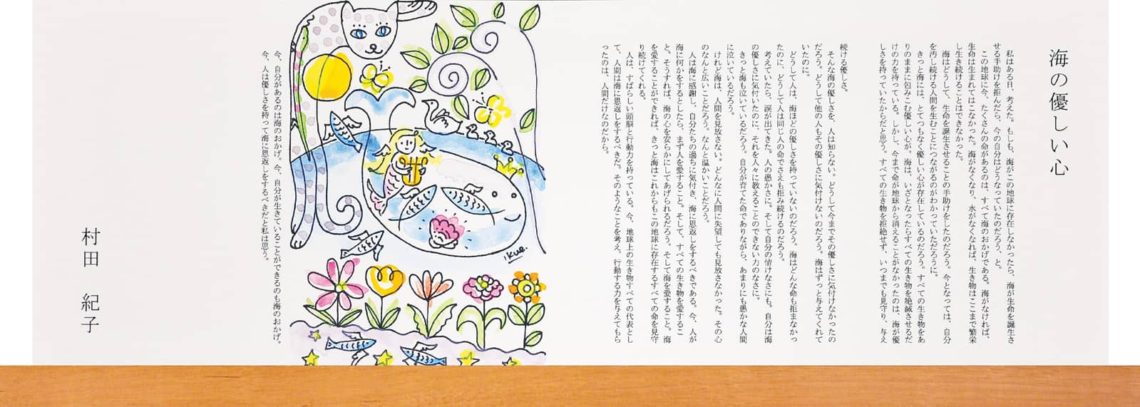 海の優しい心
　私はある日、考えた。もしも、海がこの地球に存在しなかったら、海が生命を誕生さ
せる手助けを拒んだら、今の自分はどうなっていたのだろう、と。
　この地球に今、たくさんの命があるのは、すべて海のおかげである。海がなければ、
生命は生まれてはこなかった。海がなくなり、水がなくなれば、生き物はここまで繁栄
し生き続けることはできなかった。
　海はどうして、生命を誕生させることの手助けをしたのだろう。今となっては、自分
を汚し続ける人間を生むことにつながるのがわかっていただろうに。
　きっと海には、とてつもなく優しい心が存在しているのだろう。すべての生き物をあ
りのままに包みこむ優しい心が。海は、いざとなったらすべての生き物を絶滅させるだ
けの力を持っている。しかし、今まで命が地球から消えることがなかったのは、海が優
しさを持っていたからだと思う。すべての生き物を拒絶せず、いつまでも見守り、与え
続ける優しさ。
　そんな海の優しさを、人は知らない。どうして今までその優しさに気付けなかったの
だろう。どうして他の人もその優しさに気付けないのだろう。海はずっと与えてくれて
いたのに。
　どうして人は、海ほどの優しさを持っていないのだろう。海はどんな命も拒まなかっ
たのに、どうして人は同じ人の命でさえも拒み続けるのだろう。
　考えていたら、涙が出てきた。人の愚かさに。そして自分の情けなさにも。自分は海
の優しさに気付いたのに、それを人々に教えることのできない力のなさに。
　きっと海も泣いているだろう。自分が育てた命でありながら、あまりにも愚かな人間
に泣いているだろう。
　けれど海は、人間を見放さない。どんなに人間に失望しても見放さなかった。その心
のなんと広いことだろう。なんと温かいことだろう。
　人は海に感謝し、自分たちの過ちに気付き、海に恩返しをするべきである。今、人が
海に何かをするとしたら、まず人を愛すること。そして、すべての生き物を愛するこ
と。そうすれば、海の心を安らかにしてあげられるだろう。そして海を愛すること。海
を愛することができれば、きっと海はこれからもこの地球に存在するすべての命を見守
り続けてくれる。
　人は、すばらしい頭脳と行動力を持っている。今、地球上の生き物すべての代表とし
て、人間は海に恩返しをするべきだ。そのようなことを考え、行動する力を与えてもら
ったのは、人間だけなのだから。
ikue.
　今、自分があるのは海のおかげ。今、自分が生きていることができるのも海のおかげ。
今、人は優しさを持って海に恩返しをするべきだと私は思う。
村田　紀子